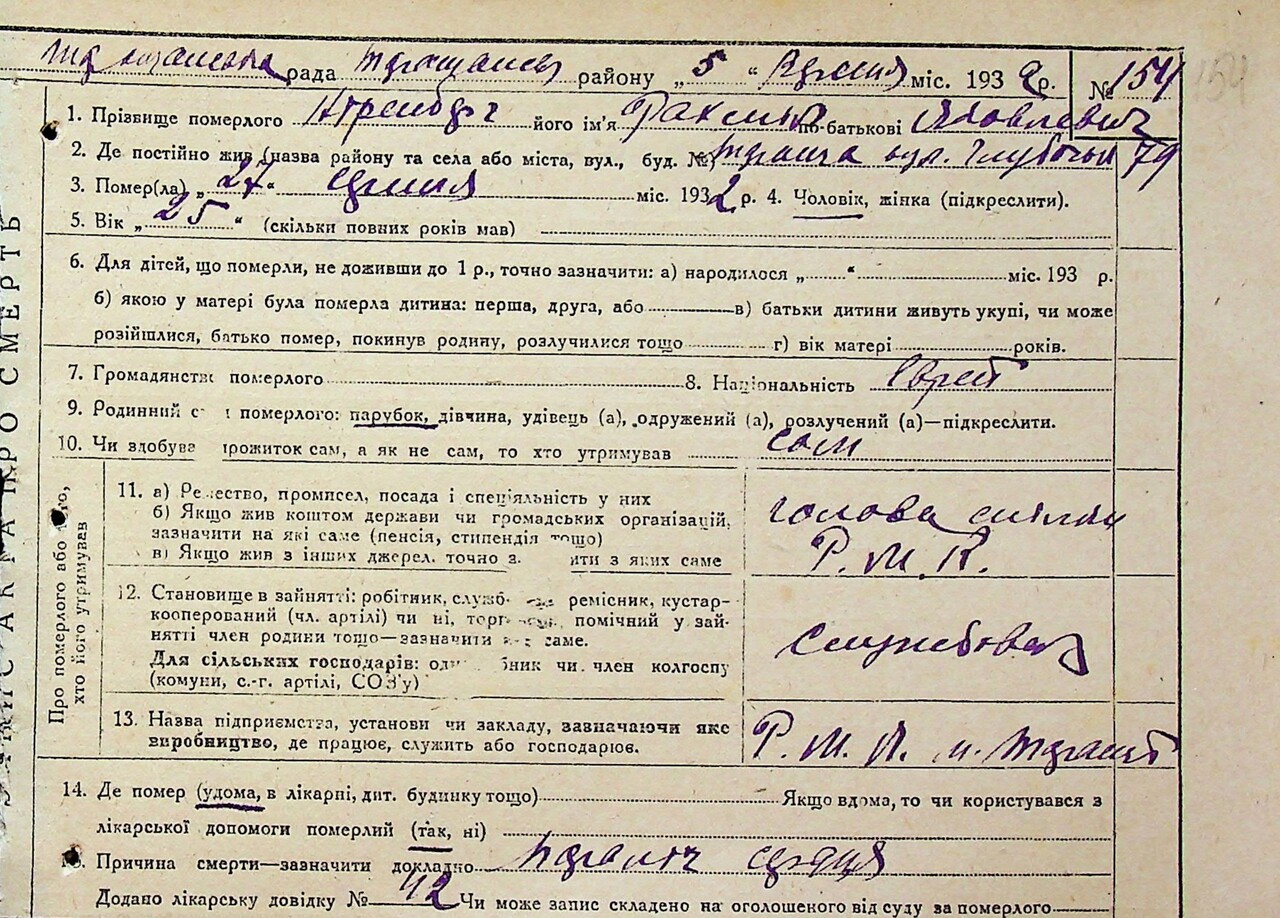 рада району „5“ міс. 1932 р. № 154
1. Прізвище померлого його ім'я по-батькові Яковлевич
2. Де постійно жив (назва району та села або міста, вул., буд. №) вул. 79
3. Помер(ла) „27“ міс. 1932 р. 4. Чоловік, жінка (підкреслити).
5. Вік „25“ (скільки повних років мав)
6. Для дітей, що померли, не доживши до 1 р., точно зазначити: а) народилося „ “ міс. 193 р.
б) якою у матері була померла дитина: перша, друга, або в) батьки дитини живуть укупі, чи може
розійшлися, батько помер, покинув родину, розлучилися тощо г) вік матері років.
7. Громадянств померлого 8. Національність Єврей
9. Родинний с померлого: парубок, дівчина, удівець (а), одружений (а), розлучений (а)—підкреслити.
10. Чи здобува прожиток сам, а як не сам, то хто утримував сам
ЗАПИС АКМА ПРО СМЕРТЬ
Про померлого або того,
хто його утримував
11. а) Ремество, промисел, посада і спеціяльність у них
б) Якщо жив коштом держави чи громадських організацій,
зазначити на які саме (пенсія, стипендія тощо)
в) Якщо жив з інших джерел, точно з ити з яких саме
голова спілки
Р. М. К.
12. Становище в зайнятті: робітник, служб ремісник, кустар-
кооперований (чл. артілі) чи ні, торг помічний у зай-
нятті член родини тощо—зазначити саме.
Для сільських господарів: од бник чи член колгоспу
(комуни, с.-г. артілі, СОЗ'у)
Службовец
13. Назва підприємства, установи чи закладу, зазначаючи яке
виробництво, де працює, служить або господарює.
Р. М.
14. Де помер (удома, в лікарні, дит. будинку тощо) Якщо вдома, то чи користувався з
лікарської допомоги померлий (так, ні)
15. Причина смерти—зазначити докладно сердця
Додано лікарську довідку № 42 Чи може запис складено на оголошеного від суду за померлого